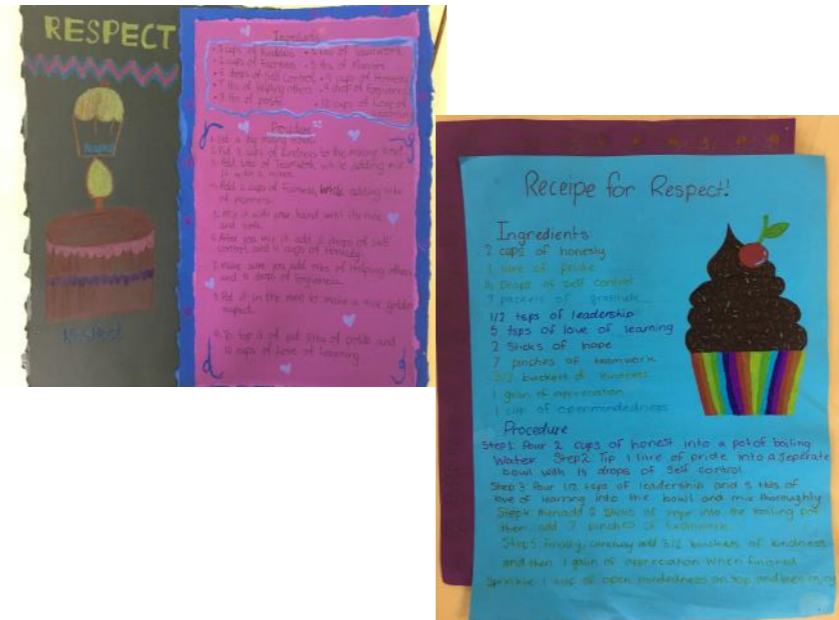 RESPECT
Respect
Ingredients
• 3 cups of Kindness • 5 lbs of Teamwork
• 2 cups of Fairness • 5 lbs of Manners
drops of Self Control • cups of Honesty
of helping others • drops of Forgiveness
of polite • 12 cups of Love of
Learning
Procedure
1. Put a big mixing bowl.
2. Put 3 cups of Kindness to the mixing bowl
3. Add of Teamwork while adding mix
it with a mixer.
4. Add 2 cups of Fairness, while adding
of manners.
5. Mix it with your hand until its nice
and soft.
6. After you mix it add drops of self
control and cups of Honesty.
7. Make sure you add of Helping others
and drops of Forgiveness.
8. Put it in the to make a nice golden
respect.
9. To top it of put of polite and
cups of Love of Learning
Receipe for Respect!
Ingredients
2 cups of honesty
1 litre of pride
14 Drops of self control
7 packets of gratitude
1/2 tsps of leadership
5 tsps of love of learning
2 Sticks of hope
7 pinches of teamwork
3 1/2 buckets of kindness
1 gain of appreciation
1 cup of openmindedness
Procedure
Step1: Pour 2 cups of honest into a pot of boiling
Water Step2: Tip 1 litre of pride into a seperate
bowl with 14 drops of Self control
Step 3: Pour 1/2 tsps of leadership and 5 tbs of
love of learning into the bowl and mix thoroughly
Step4: then add 2 Sticks of hope into the boiling pot
then add 7 pinches of teamwork
Step5: Finally, carefuly add 3 1/2 buckets of kindness
and then 1 gain of appreciation When finished
Sprinkle 1 cup of open mindedness on top and then enjoy